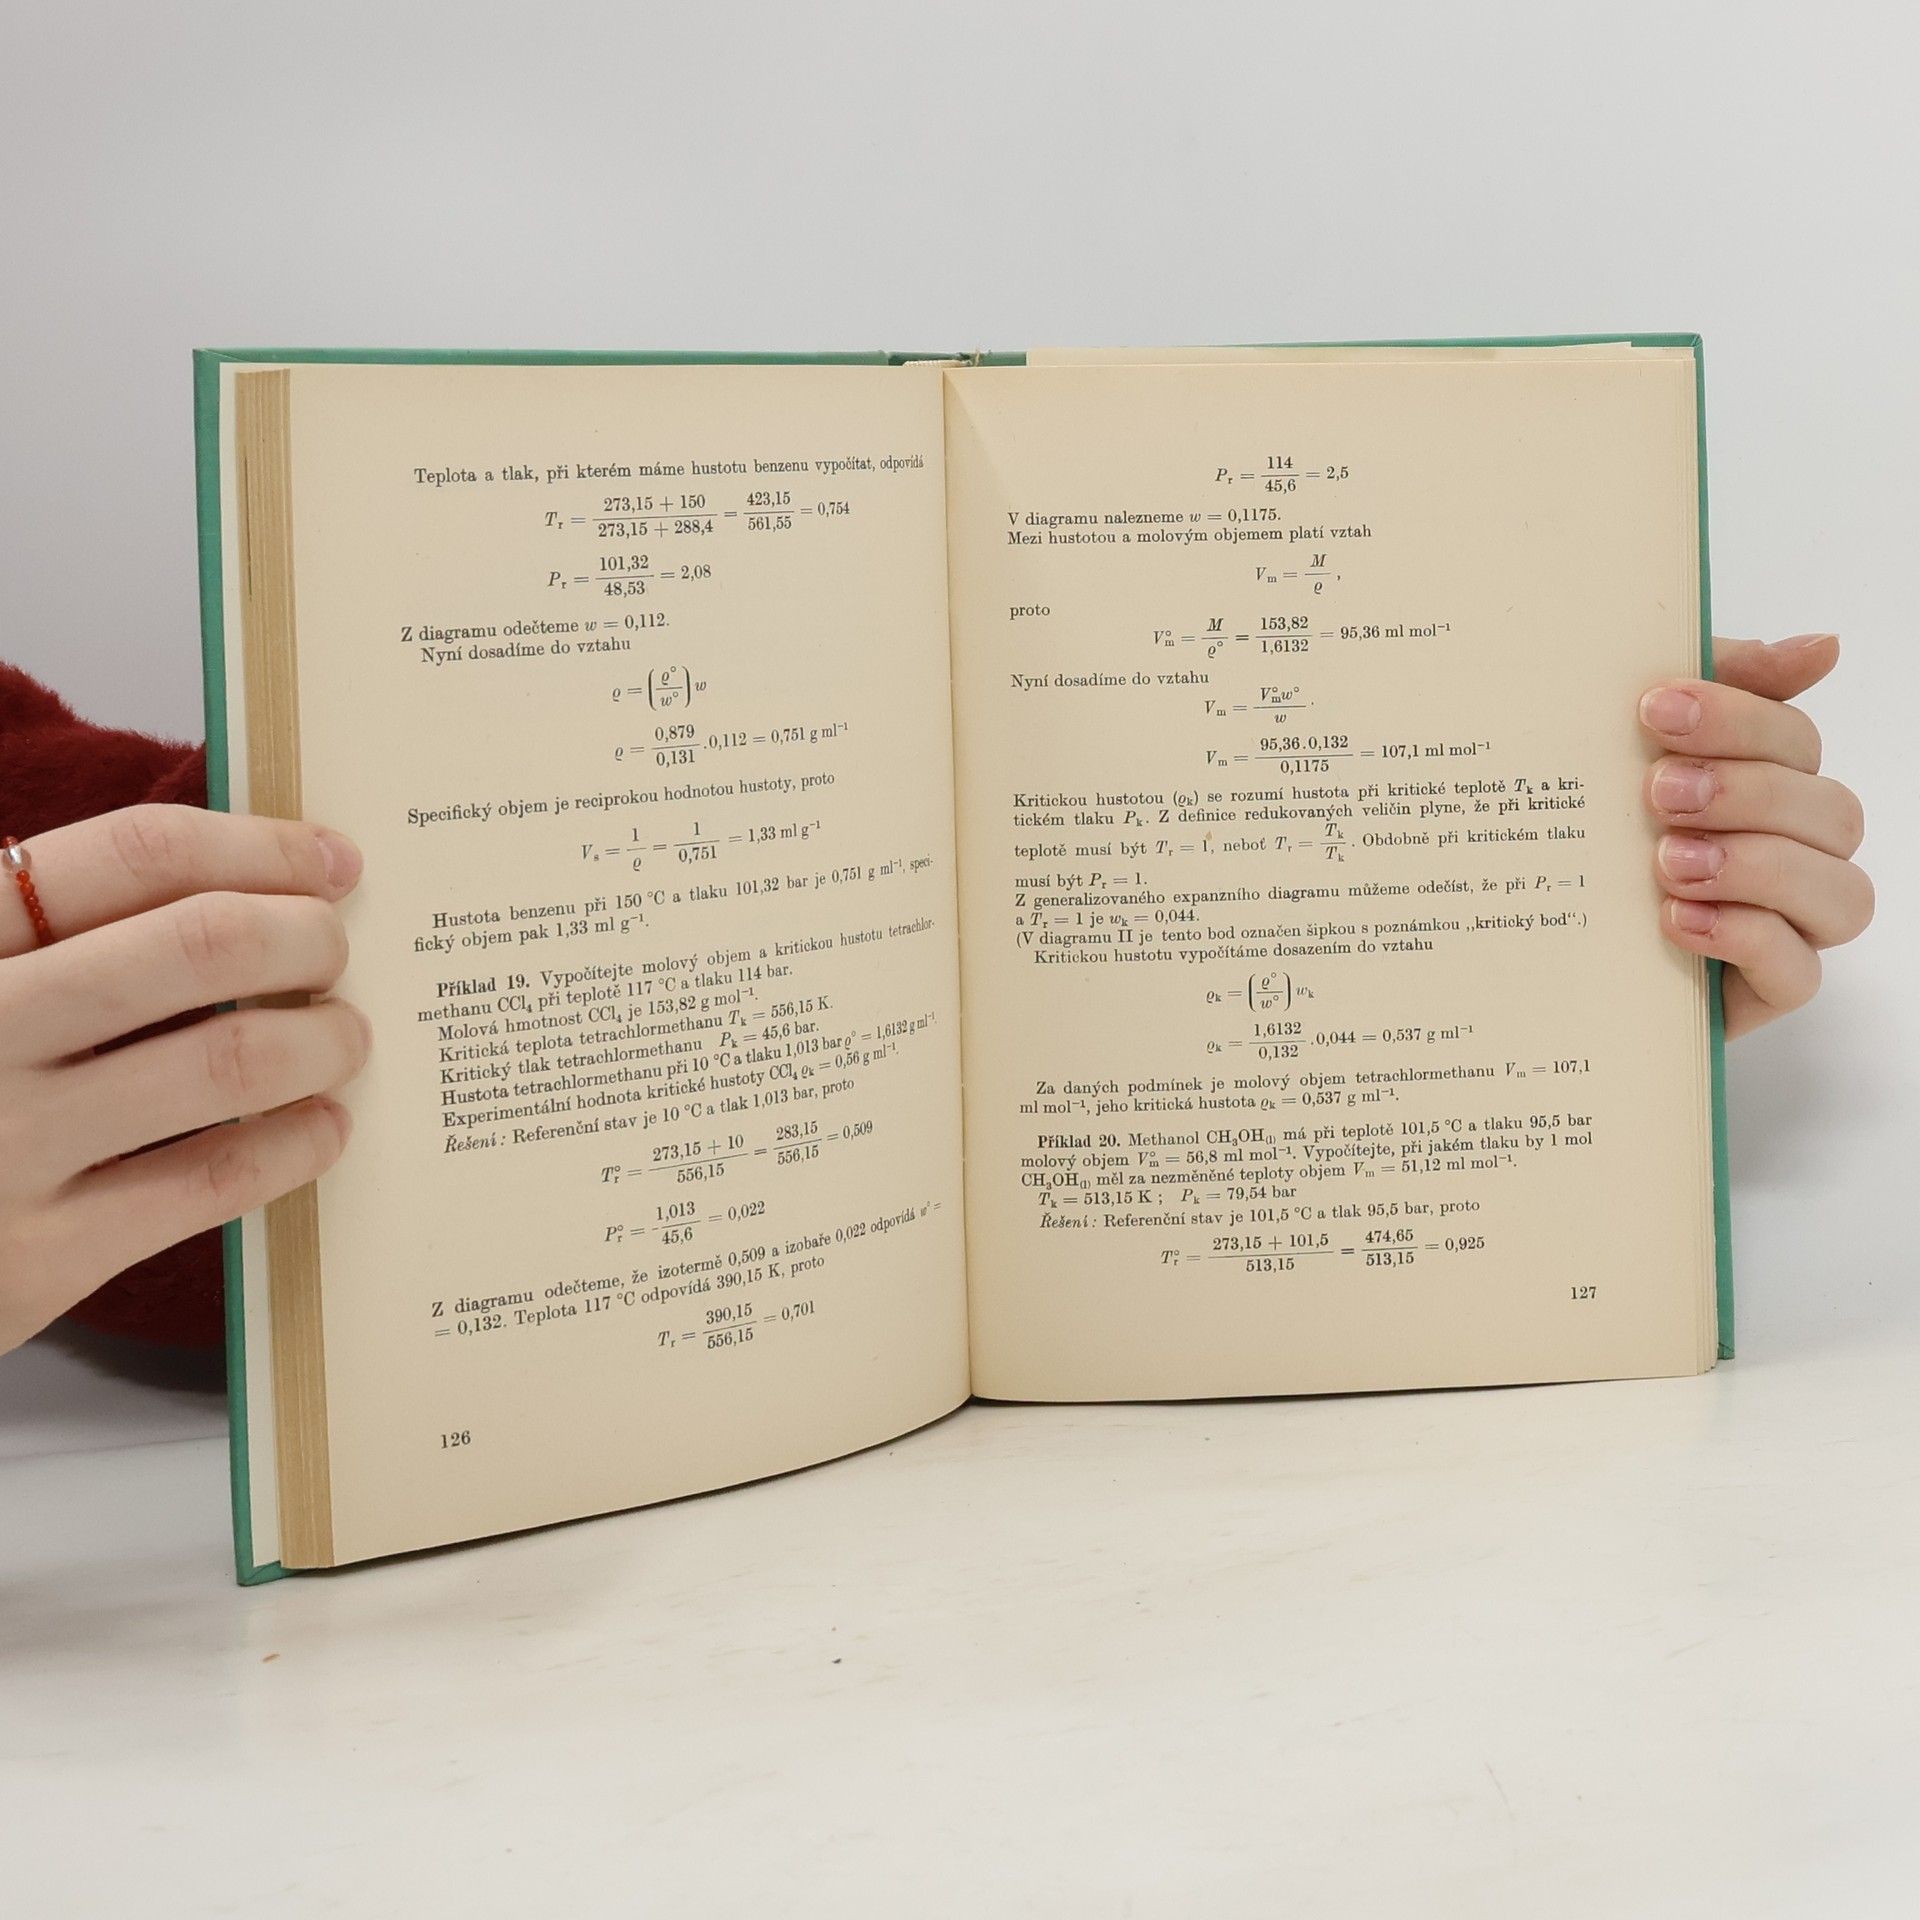 Teplota a tlak, při kterém máme hustotu benzenu vypočítat, odpovídá
T_r = (273,15 + 150)/(273,15 + 288,4) = 423,15/561,55 = 0,754
P_r = 101,32/48,53 = 2,08
Z diagramu odečteme w = 0,112.
Nyní dosadíme do vztahu
ϱ = (ϱ°/w°) w
ϱ = 0,879/0,131 . 0,112 = 0,751 g ml⁻¹
Specifický objem je reciprokou hodnotou hustoty, proto
V_s = 1/ϱ = 1/0,751 = 1,33 ml g⁻¹
Hustota benzenu při 150 °C a tlaku 101,32 bar je 0,751 g ml⁻¹, speci-
fický objem pak 1,33 ml g⁻¹.
Příklad 19. Vypočítejte molový objem a kritickou hustotu tetrachlor-
methanu CCl₄ při teplotě 117 °C a tlaku 114 bar.
Molová hmotnost CCl₄ je 153,82 g mol⁻¹.
Kritická teplota tetrachlormethanu T_k = 556,15 K.
Kritický tlak tetrachlormethanu P_k = 45,6 bar.
Hustota tetrachlormethanu při 10 °C a tlaku 1,013 bar ϱ° = 1,6132 g ml⁻¹.
Experimentální hodnota kritické hustoty CCl₄ ϱ_k = 0,56 g ml⁻¹.
Řešení: Referenční stav je 10 °C a tlak 1,013 bar, proto
T°_r = (273,15 + 10)/556,15 = 283,15/556,15 = 0,509
P°_r = 1,013/45,6 = 0,022
Z diagramu odečteme, že izotermě 0,509 a izobaře 0,022 odpovídá w° =
= 0,132. Teplota 117 °C odpovídá 390,15 K, proto
T_r = 390,15/556,15 = 0,701
126
P_r = 114/45,6 = 2,5
V diagramu nalezneme w = 0,1175.
Mezi hustotou a molovým objemem platí vztah
V_m = M/ϱ ,
proto
V°_m = M/ϱ° = 153,82/1,6132 = 95,36 ml mol⁻¹
Nyní dosadíme do vztahu
V_m = V°_m w°/w .
V_m = 95,36 . 0,132/0,1175 = 107,1 ml mol⁻¹
Kritickou hustotou (ϱ_k) se rozumí hustota při kritické teplotě T_k a kri-
tickém tlaku P_k. Z definice redukovaných veličin plyne, že při kritické
teplotě musí být T_r = 1, neboť T_r = T_k/T_k . Obdobně při kritickém tlaku
musí být P_r = 1.
Z generalizovaného expanzního diagramu můžeme odečíst, že při P_r = 1
a T_r = 1 je w_k = 0,044.
(V diagramu II je tento bod označen šipkou s poznámkou „kritický bod“.)
Kritickou hustotu vypočítáme dosazením do vztahu
ϱ_k = (ϱ°/w°) w_k
ϱ_k = 1,6132/0,132 . 0,044 = 0,537 g ml⁻¹
Za daných podmínek je molový objem tetrachlormethanu V_m = 107,1
ml mol⁻¹, jeho kritická hustota ϱ_k = 0,537 g ml⁻¹.
Příklad 20. Methanol CH₃OH₍ₗ₎ má při teplotě 101,5 °C a tlaku 95,5 bar
molový objem V°_m = 56,8 ml mol⁻¹. Vypočítejte, při jakém tlaku by 1 mol
CH₃OH₍ₗ₎ měl za nezměněné teploty objem V_m = 51,12 ml mol⁻¹.
T_k = 513,15 K ; P_k = 79,54 bar
Řešení: Referenční stav je 101,5 °C a tlak 95,5 bar, proto
T°_r = (273,15 + 101,5)/513,15 = 474,65/513,15 = 0,925
127